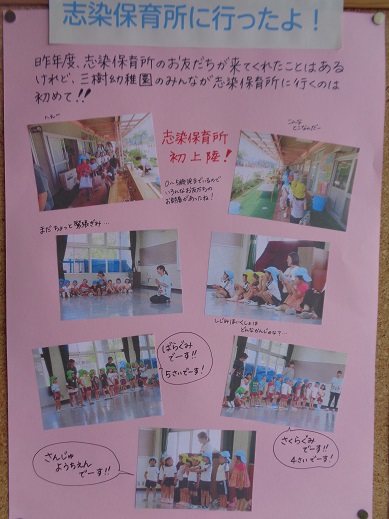 志染保育所に行ったよ！
昨年度、志染保育所のお友だちが来てくれたことはある
けれど、三樹幼稚園のみんなが志染保育所に行くのは
初めて!!
志染保育所
初上陸！
こんな
ところなんだ〜
0〜5歳児までいるので
いろんなお友だちの
お部屋があったね！
まだちょっと緊張ぎみ…
しじみほいくしょは
どんなかんじかな？…
ばらぐみ
でーす!!
5さいでーす！
さくらぐみ
でーす!!
4さいでーす！
さんじゅ
ようちえん
でーす!!